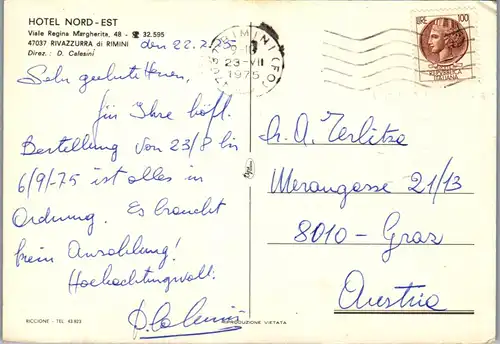 HOTEL NORD-EST
Viale Regina Margherita, 48 - ☎ 32.595
47037 RIVAZZURRA di RIMINI
Direz.: D. Calesini
den 22.7.75
Sehr geehrte Herren,
für Ihre höfl.
Bestellung von 23/8 bis
6/9/-75 ist alles in
Ordnung. Es braucht
kein Anzahlung!
Hochachtungsvoll:
D. Calesini
RICCIONE - TEL. 43823
RIPRODUZIONE VIETATA
RIMINI (FO)
23-VII
1975
LIRE 100
REPUBBLICA
ITALIANA
A. Terlitza
Merangasse 21/13
8010 - Graz
Austria